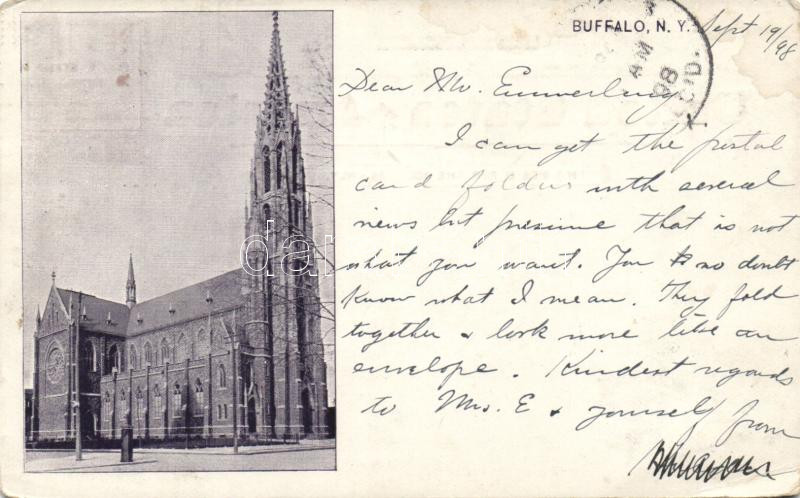 BUFFALO, N. Y. Sept 19/98
AM
98
Dear Mr. Emmerling
I can get the postal
card folders with several
views but presume that is not
what you want. You no doubt
know what I mean. They fold
together & look more like an
envelope. Kindest regards
to Mrs. E & yourself from